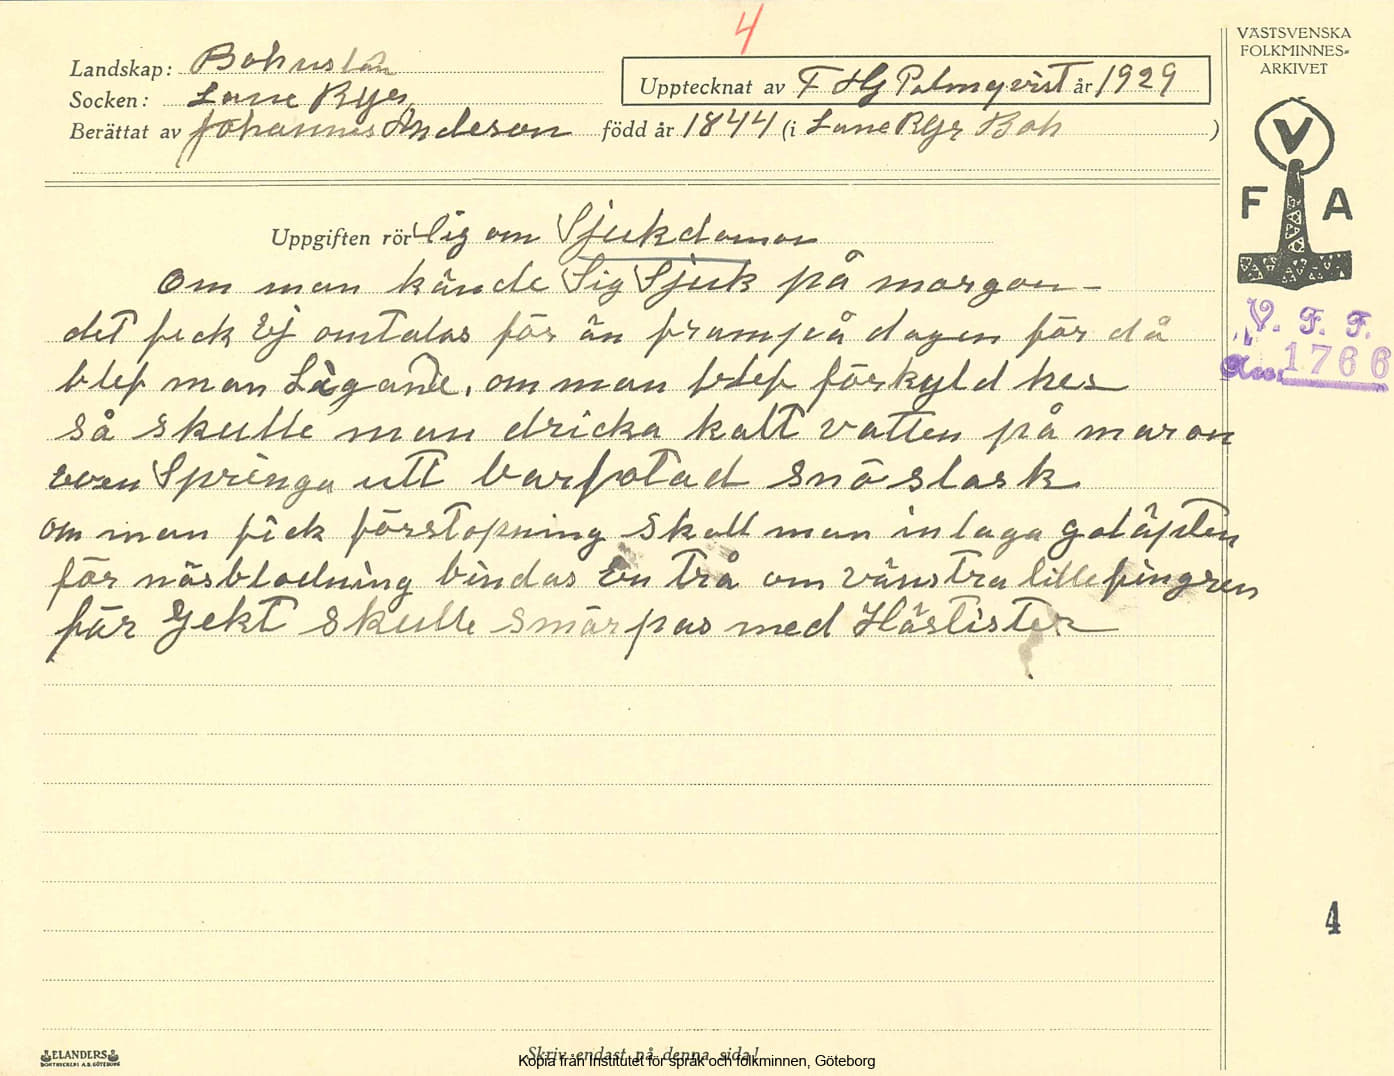 4
VÄSTSVENSKA
FOLKMINNES-
ARKIVET
Landskap: Bohuslän
Upptecknat av F HG Palmqvist år 1929
Socken: Lane Ryr
Berättat av Johannes Anderson född år 1844 (i Lane Ryr Boh )
V
F A
Uppgiften rör Sig om Sjukdomar
om man kände Sig Sjuk på morgon-
det fick Ej omtalas för än frampå dagen för då
blef man Ligande. om man blef förkyld hes
så skulle man dricka kalt vatten på maron
Springa utt barfotad snö slask
om man fick förstopning skall man inlaga
för näsblodning bindas En trå om vänstra lillefingren
för Gekt skulle smörpas med Hästister
V. F. F.
1766
4
ELANDERS
BOKTRYCKERI A.B. GÖTEBORG
Skriv endast på denna sida!
Kopia från Institutet för språk och folkminnen, Göteborg